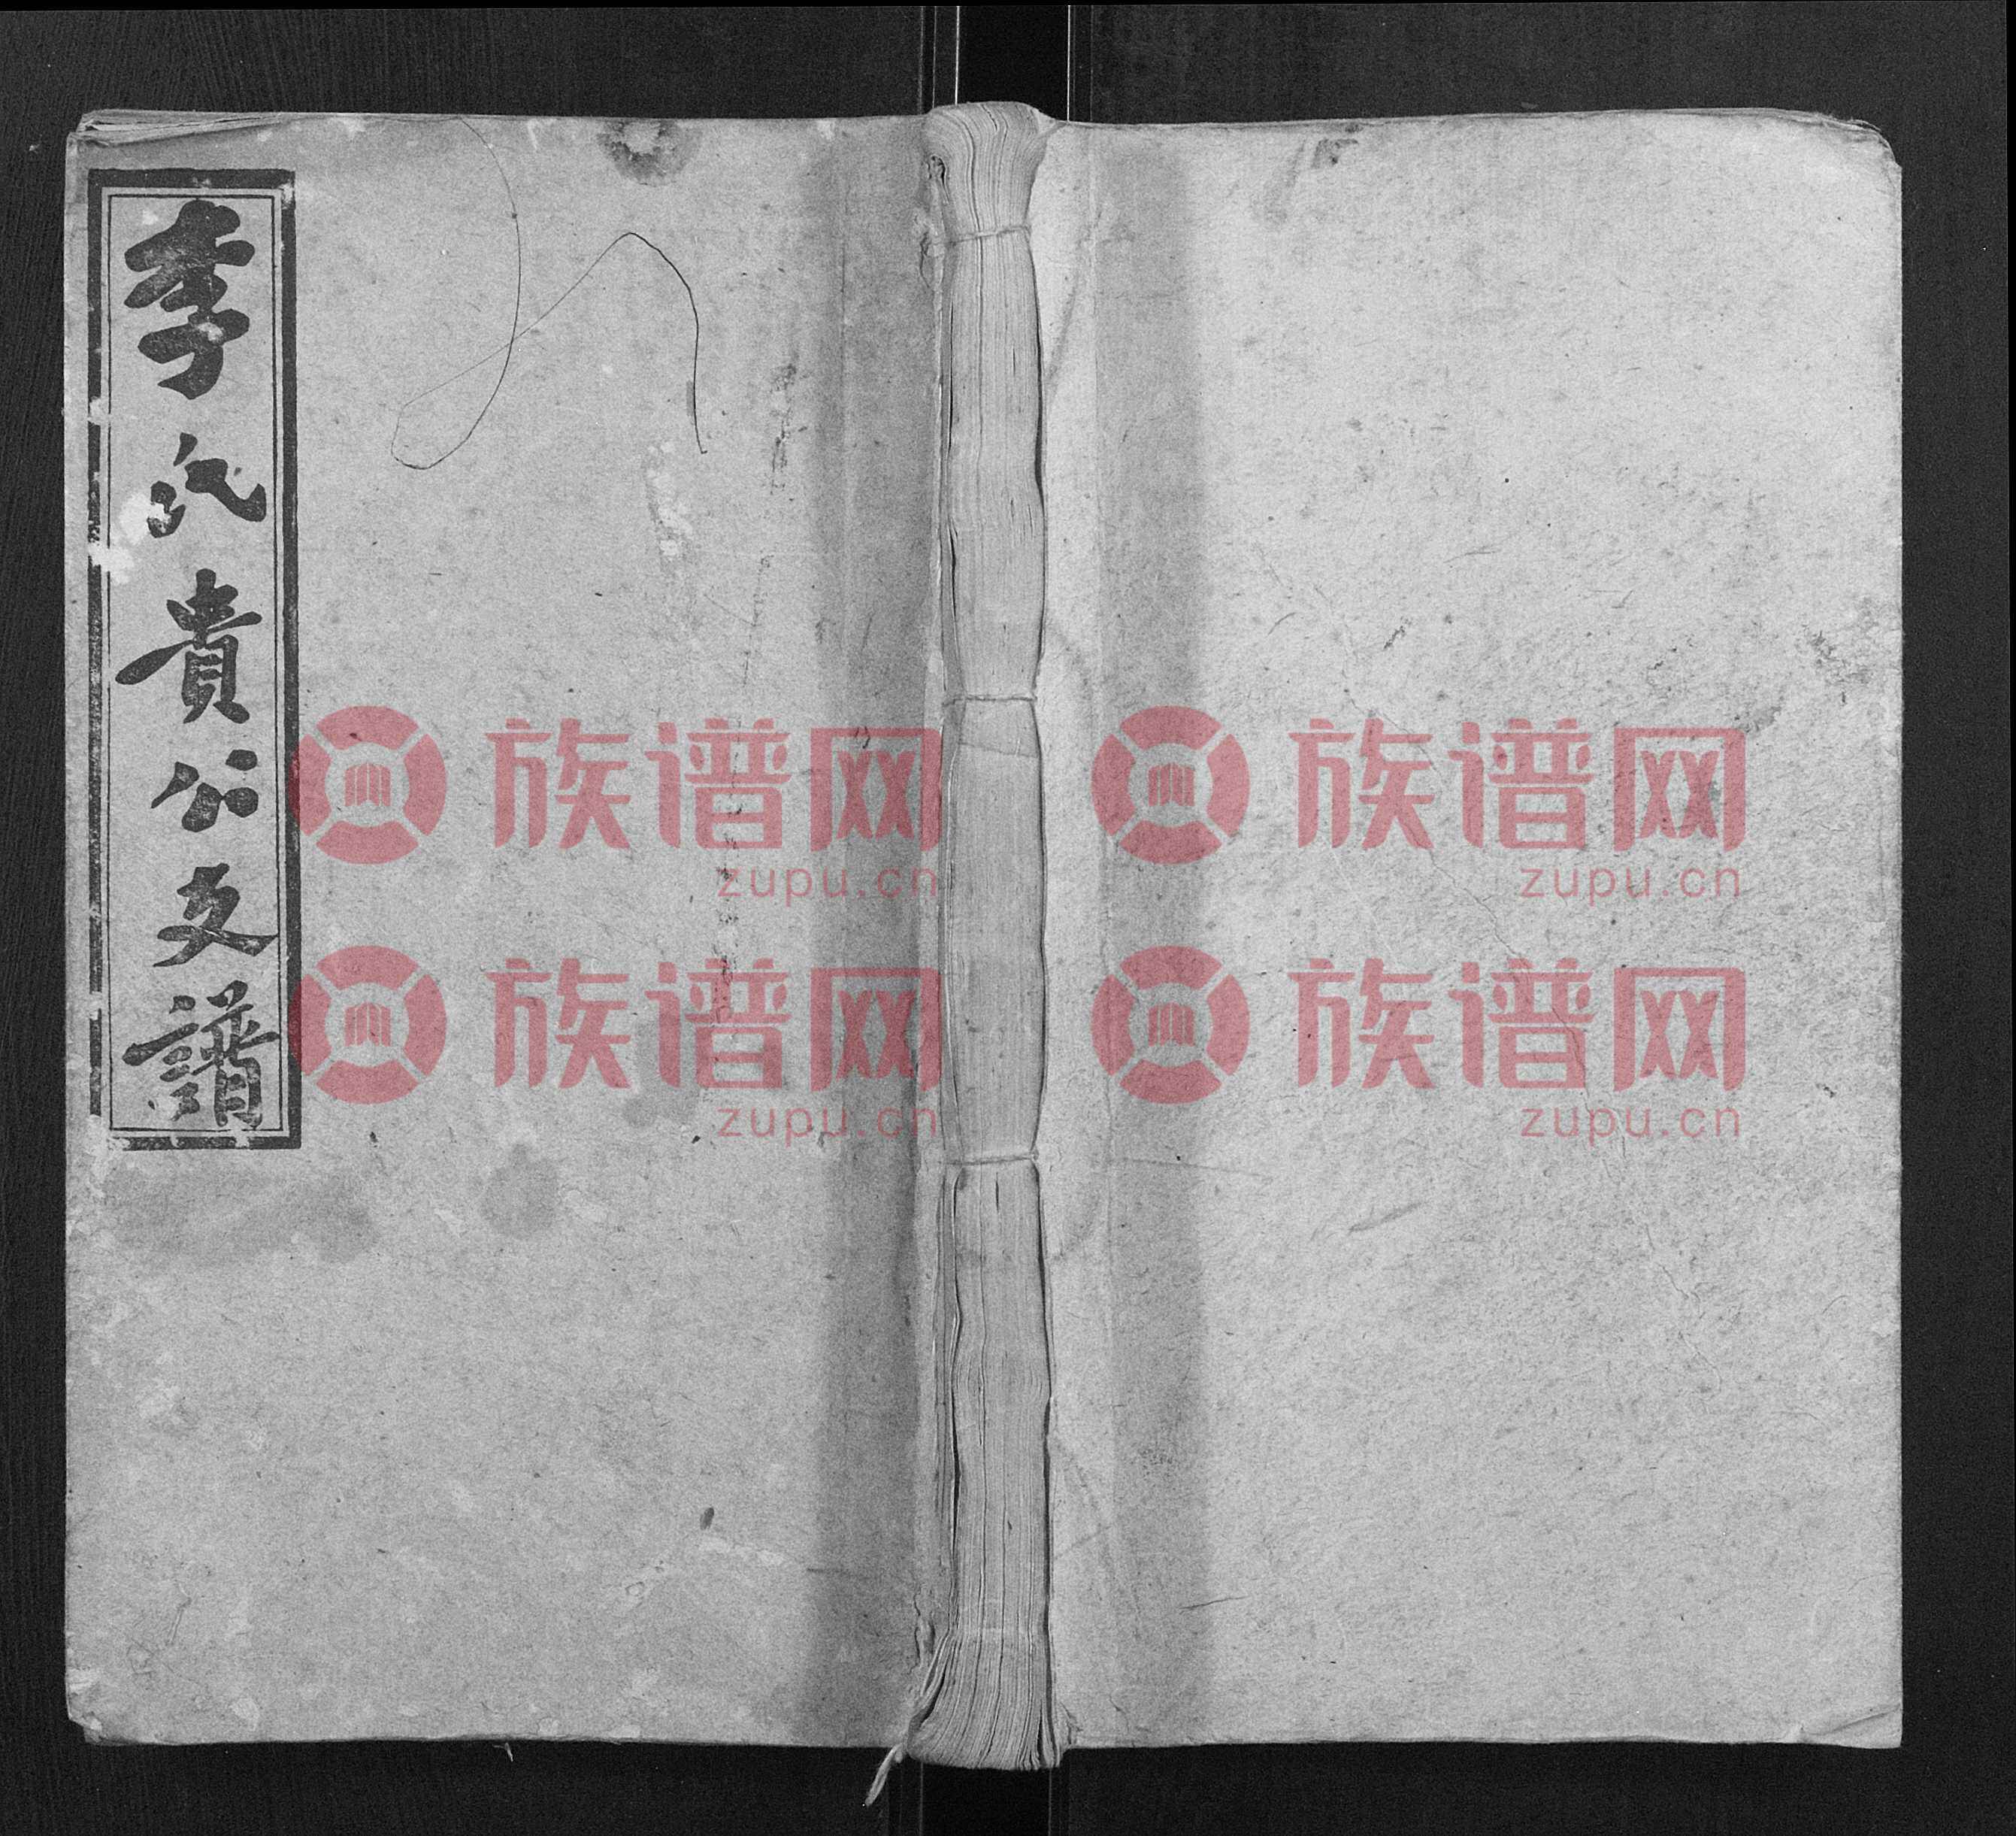 李氏貴公支譜
族谱网 族谱网
zupu.cn zupu.cn
族谱网 族谱网
zupu.cn zupu.cn